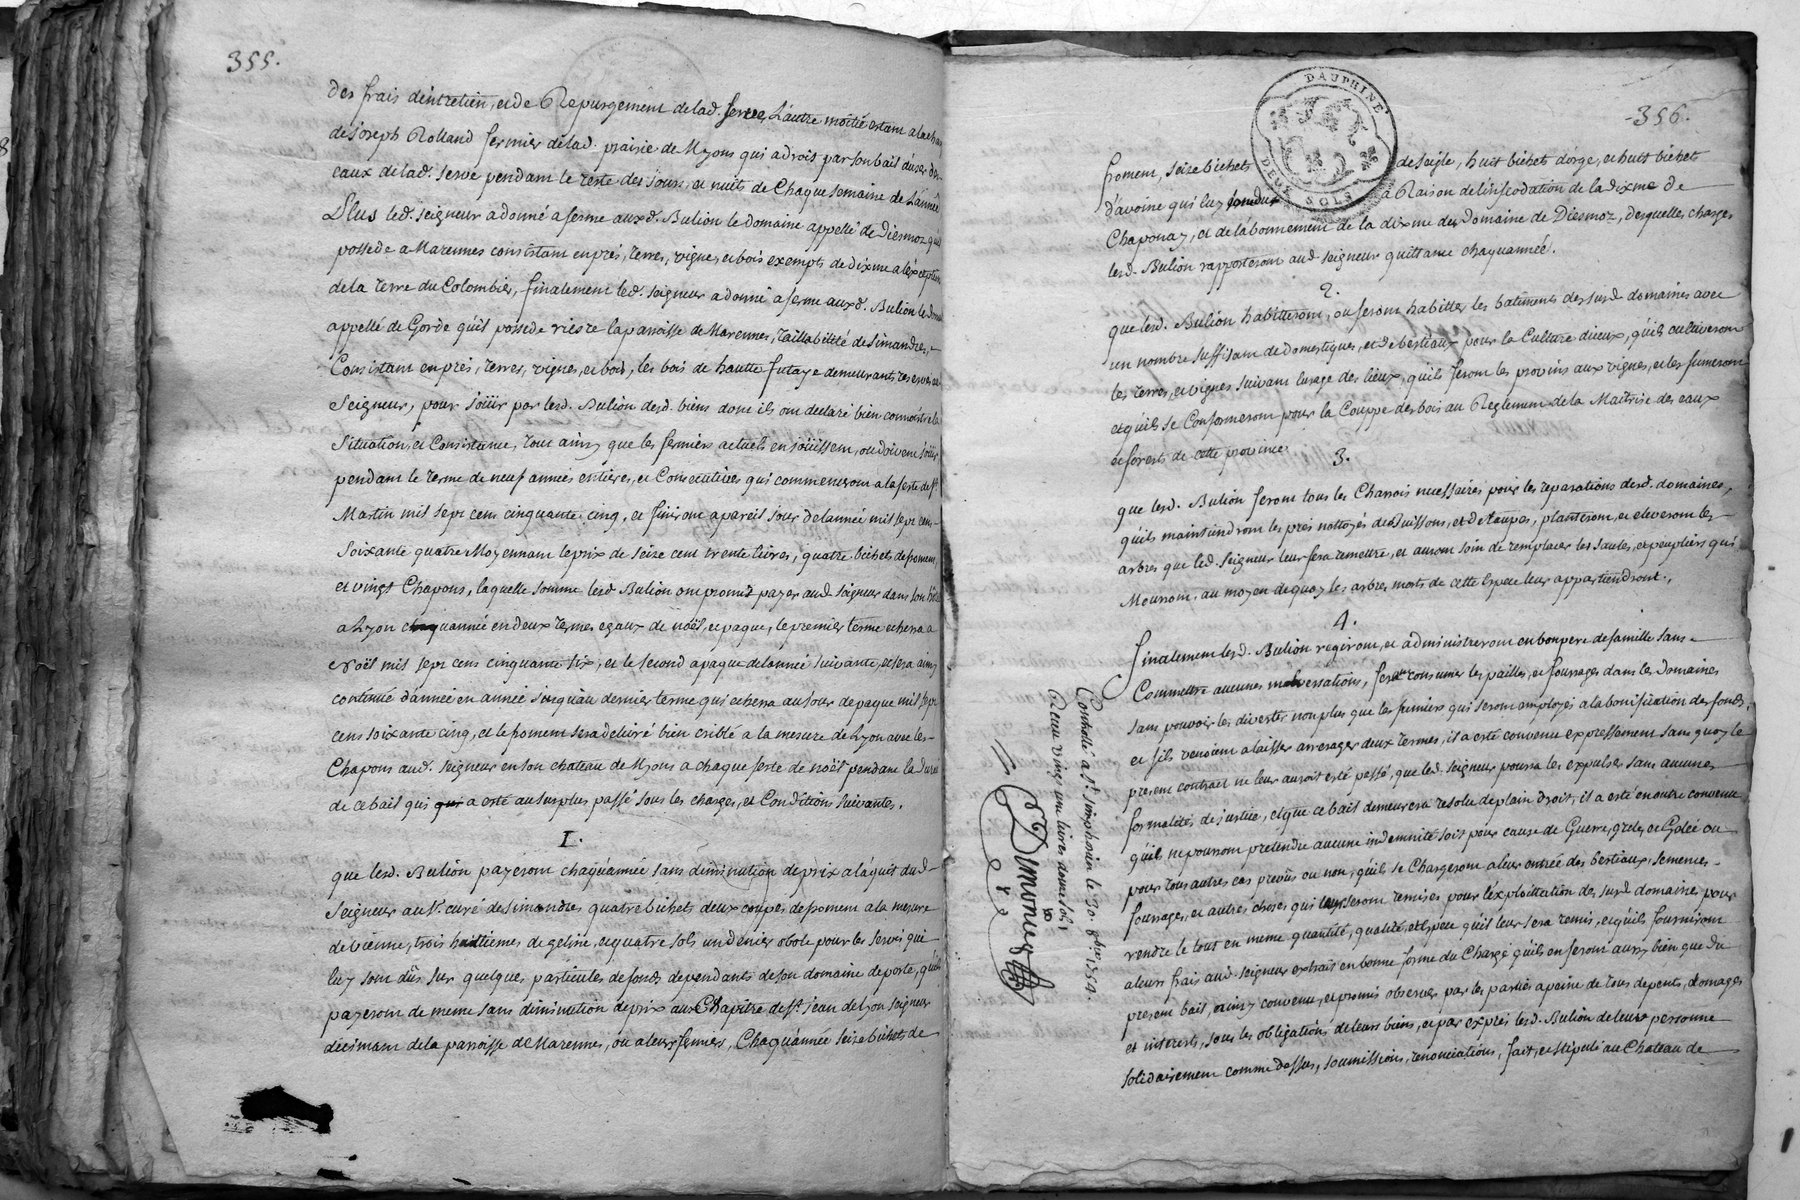 355.
des frais d'entretien, et de Repurgement de lad. serve, L'autre moitié estant a la char
de Joseph Rolland fermier de lad. prairie de Myons qui a droit par son bail d'user des
eaux de lad. serve pendant le reste des jours, et nuits de Chaque semaine de L'année
Plus led. seigneur a donné a ferme auxd. Bulion le domaine appellé de Diesmoz qu'il
possede a Marennes consistant en prés, terres, vignes, et bois exempts de dixme a l'exception
de la terre du Colombier, finalement led. seigneur a donné a ferme auxd. Bulion le dom
appellé de Gorde qu'il possede riesre la parroisse de Marennes, taillabilité de Simandres,
Consistant en prés, terres, vignes, et bois, les bois de hautte futaye demeurants reservés au
seigneur, pour joüir par lesd. Bulion desd. biens dont ils ont declaré bien connoistre la
situation, et Consistance, tout ainsy que les fermiers actuels en joüissent, ou doivent joüir
pendant le terme de neuf années entieres, et Consecutives qui commenceront a la feste de St.
Martin mil sept cens cinquante cinq, et finiront a pareil jour de l'année mil sept cens
soixante quatre Moyennant le prix de seize cent trente livres, quatre bichets de froment
et vingt Chapons, laquelle somme lesd. Bulion ont promis payer aud. seigneur dans son hôtel
a Lyon chaquannée en deux termes egaux de noël, et paque, le premier terme echerra a
Noël mil sept cens cinquante six, et le second a paque de l'année suivante, et sera ainsy
continué d'année en année jusqu'au dernier terme qui echerra au jour de paque mil sept
cens soixante cinq, et le froment sera delivré bien criblé a la mesure de Lyon avec les
Chapons aud. seigneur en son chateau de Myons a chaque feste de noël pendant la durée
de ce bail qui qui a esté au surplus passé sous les charges, et Conditions suivantes.
I.
que lesd. Bulion payeront chaqu'année sans diminution de prix a l'aquit dud.
seigneur au Sr. curé de Simandres quatre bichets deux coupes de froment a la mesure
de vienne, trois huittiemes de geline, et quatre sols un denier obole pour les servis qui
luy sont dûs sur quelques particules de fonds dependants de son domaine de porte, qu'ils
payeront de meme sans diminution de prix aux Chapitre de St. jean de Lyon seigneur
decimant de la parroisse de Marennes, ou a leurs fermiers, Chaqu'année seize bichets de
DAUPHINÉ
DEUX SOLS
356.
froment, seize bichets de seigle, huit bichets d'orge, et huit bichets
d'avoine qui luy sont dus a Raison de l'infeodation de la dixme de
Chaponay, et de l'abonnement de la dixme des domaine de Diesmoz, desquelles charges
lesd. Bulion rapporteront aud. seigneur quittance chaquannée.
2.
que lesd. Bulion habitteront, ou feront habitter les batiments desusd. domaines avec
un nombre suffisant de domestiques, et de bestiaux pour la Culture d'iceux, qu'ils cultiveront
les terres, et vignes suivant l'usage des lieux, qu'ils feront les provins aux vignes, et les fumeront
et qu'ils se Conformeront pour la Couppe des bois au Reglement de la Maitrise des eaux
et forests de cette province.
3.
que lesd. Bulion feront tous les Charrois necessaires pour les reparations desd. domaines,
qu'ils maintiendront les prés nottoyés de Buissons, et de taupes, planteront, et eleveront les
arbres que led. seigneur leur fera remettre, et auront soin de remplacer les saules, et peupliers qui
Mourront, au moyen de quoy les arbres morts de cette Espece leur appartiendront.
4.
finalement lesd. Bulion regiront, et administreront en bon pere de famille sans
Commettre aucunes malversations, feront consumer les pailles, et fourrages dans les domaines
sans pouvoir les divertir non plus que les fumiers qui seront employés a la bonification des fonds,
et s'ils venoient a laisser arrerager deux termes, il a esté convenu expressement sans quoy le
present contract ne leur auroit esté passé, que led. seigneur pourra les expulser sans aucunes
formalités de justice, et que ce bail demeurera resolu de plain droit, il a esté en outre convenu
qu'ils ne pourront pretendre aucune indemnité soit pour cause de Guerre, grele, et Gelée ou
pour tous autres cas prevûs ou non, qu'ils se Chargeront a leur entrée des bestiaux, semences,
fourrages, et autres choses qui leur seront remises pour l'exploittation desusd. domaines pour
rendre le tout en meme quantité, qualité, et Espece qu'il leur sera remis, et qu'ils fourniront
a leurs frais aud. seigneur extrait en bonne forme du Chargé qu'ils en feront aussy bien que du
present bail, ainsy convenu, et promis observer par les parties a peine de tous depents, domages
et interests, sous les obligations de leurs biens, et par exprés lesd. Bulion de leurs personne
solidairement comme dessus, soumissions, renonciations, fait, et stipulé au Chateau de
Controllé a St. simphorien le 30. 8bre 1754.
Receu vingt une livres douze sols